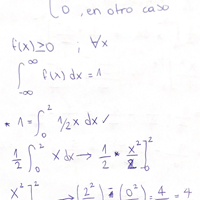 0, en otro caso
f(x) ≥ 0 ; ∀x
∫_{-∞}^{∞} f(x) dx = 1
* 1 = ∫_0^2 1/2 x dx ✓
1/2 ∫_0^2 x dx → 1/2 * x²/2 ]_0^2
x² ]² → (2²) - (0²) = 4 = 4